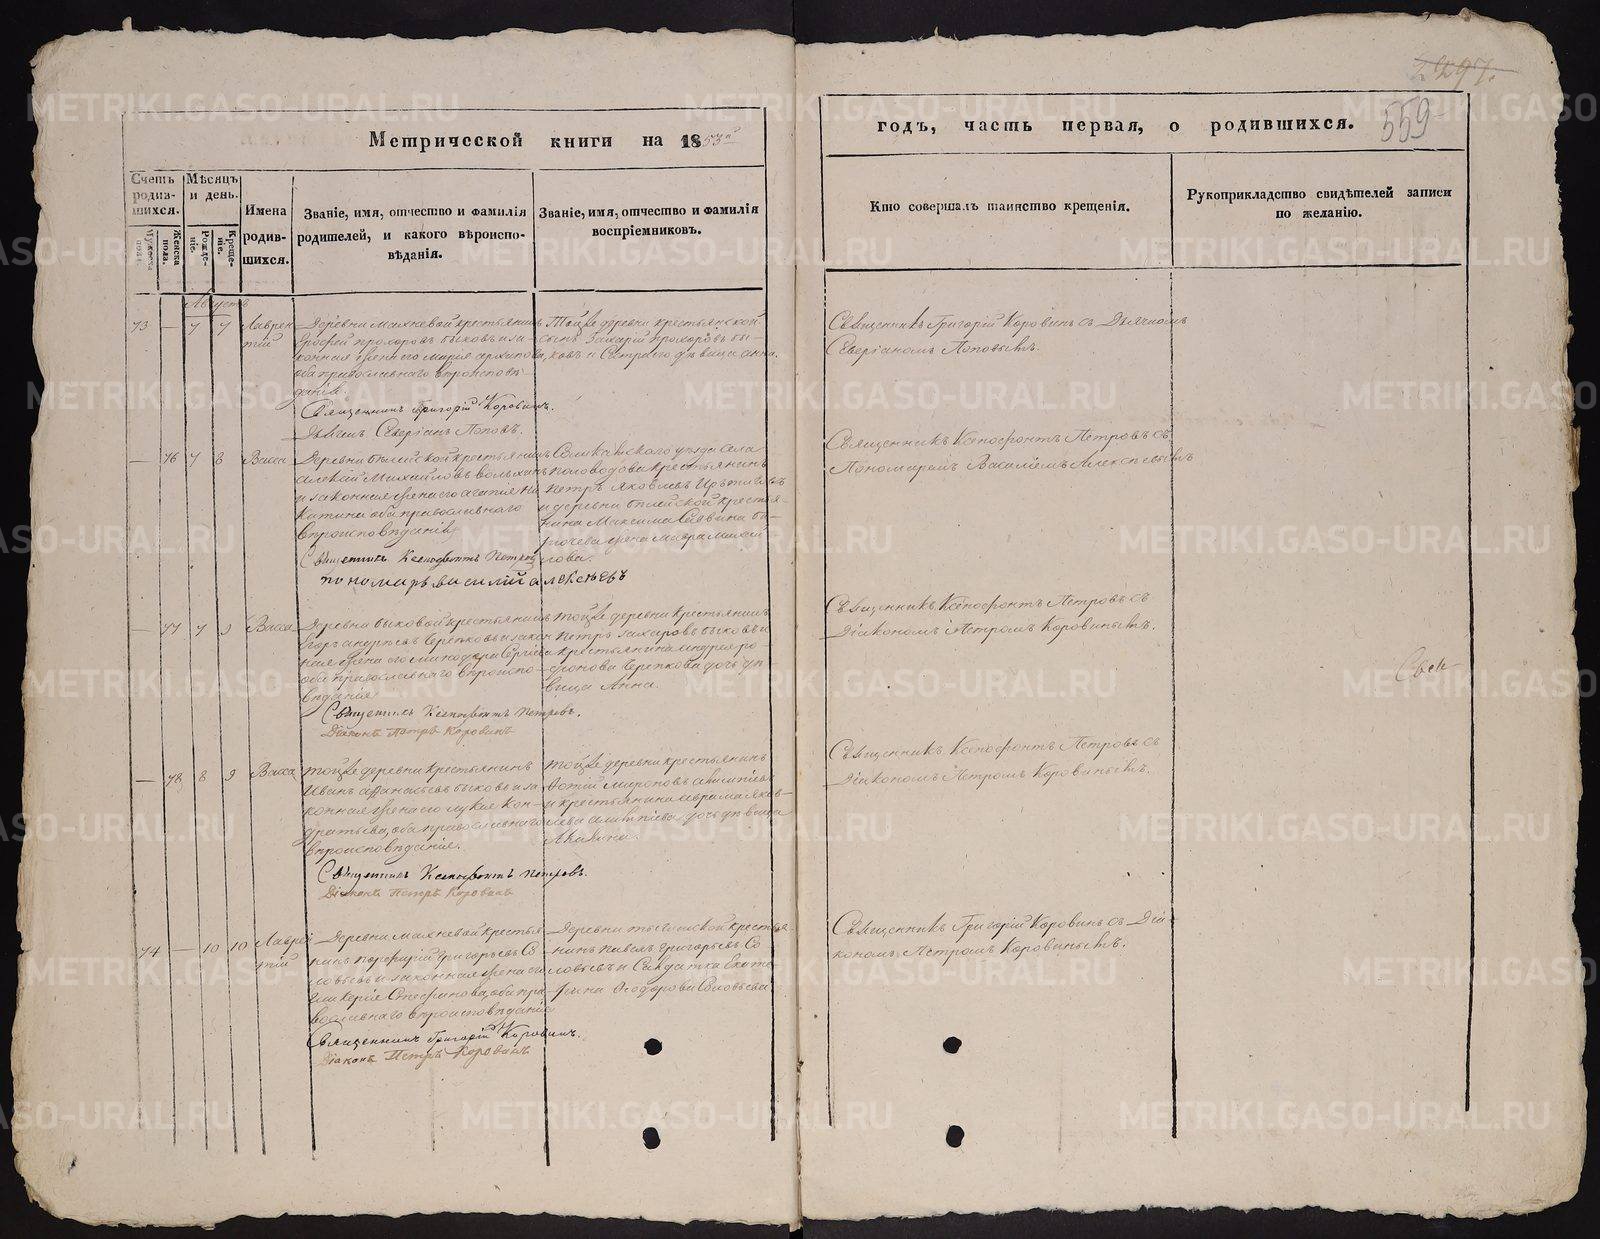 297.
559
Метрической книги на 1853й
годъ, часть первая, о родившихся.
Счетъ родив-шихся.
Мужеска пола.
Женска пола.
Мѣсяцъ и день.
Рожде-нія.
Креще-нія.
Имена родив-шихся.
Званіе, имя, отчество и фамилія
родителей, и какого вѣроиспо-
вѣданія.
Званіе, имя, отчество и фамилія
воспріемниковъ.
Кто совершалъ таинство крещенія.
Рукоприкладство свидѣтелей записи
по желанію.
Августъ
73 — 7 7 Лаврен
тій
Деревни Махневой крестьянинъ
Прохоровъ Быковъ и за-
конная жена его Марія Архипова,
оба православнаго вѣроисповѣ
данія.
Священникъ Григорій Коровинъ.
Дьячекъ Северіанъ Поповъ.
Тойже деревни крестьянской
сынъ Захарій Прохоровъ Бы-
ковъ и сестра его дѣвица Анна.
Священникъ Григорій Коровинъ съ Дьячкомъ
Северіаномъ Поповымъ.
— 76 7 8 Васса
Деревни крестьянинъ
Алексѣй Михайловъ
и законная жена его Агапія Ни
китина оба православнаго
вѣроисповѣданія
Священникъ Ксенофонтъ Петровъ
пономарь василій алексѣевъ
Соликамскаго уѣзда села
Половодова крестьянинъ
Петръ Яковлевъ
и деревни крестья-
нина Максима Саввина
жена Мавра Михай
лова.
Священникъ Ксенофонтъ Петровъ съ
Пономаремъ Василіемъ Алексѣевымъ
— 77 7 9 Васса
Деревни Быковой крестьянинъ
Егоръ Андреевъ Черепковъ и закон
ная жена его Минодора Сергіева
оба православнаго вѣроиспо-
вѣданія
Священникъ Ксенофонтъ Петровъ.
Діаконъ Петръ Коровинъ
Тойже деревни крестьянинъ
Петръ Захаровъ Быковъ и
крестьянина Андрея
Черепкова дочь дѣ
вица Анна.
Священникъ Ксенофонтъ Петровъ съ
Діакономъ Петромъ Коровинымъ.
Свен-
— 78 8 9 Васса
Тойже деревни крестьянинъ
Иванъ Афанасьевъ Быковъ и за
конная жена его Лукія Кон-
дратьева, оба православнаго
вѣроисповѣданія.
Священникъ Ксенофонтъ Петровъ.
Діаконъ Петръ Коровинъ
Тойже деревни крестьянинъ
Мироновъ
и крестьянина Аврама Яков-
лева дочь дѣвица
Акилина.
Священникъ Ксенофонтъ Петровъ съ
Діакономъ Петромъ Коровинымъ.
74 — 10 10 Лаврен
тій
Деревни Махневой крестья
нинъ Порфирій Григорьевъ Со
ловьевъ и законная жена его
Гликерія Стефанова, оба пра-
вославнаго вѣроисповѣданія
Священникъ Григорій Коровинъ.
Діаконъ Петръ Коровинъ
Деревни крестья
нинъ Павелъ Григорьевъ Со
ловьевъ и Солдатка Екате-
рина Ѳеодорова Соловьева
Священникъ Григорій Коровинъ съ Діа-
кономъ Петромъ Коровинымъ.
METRIKI.GASO-URAL.RU